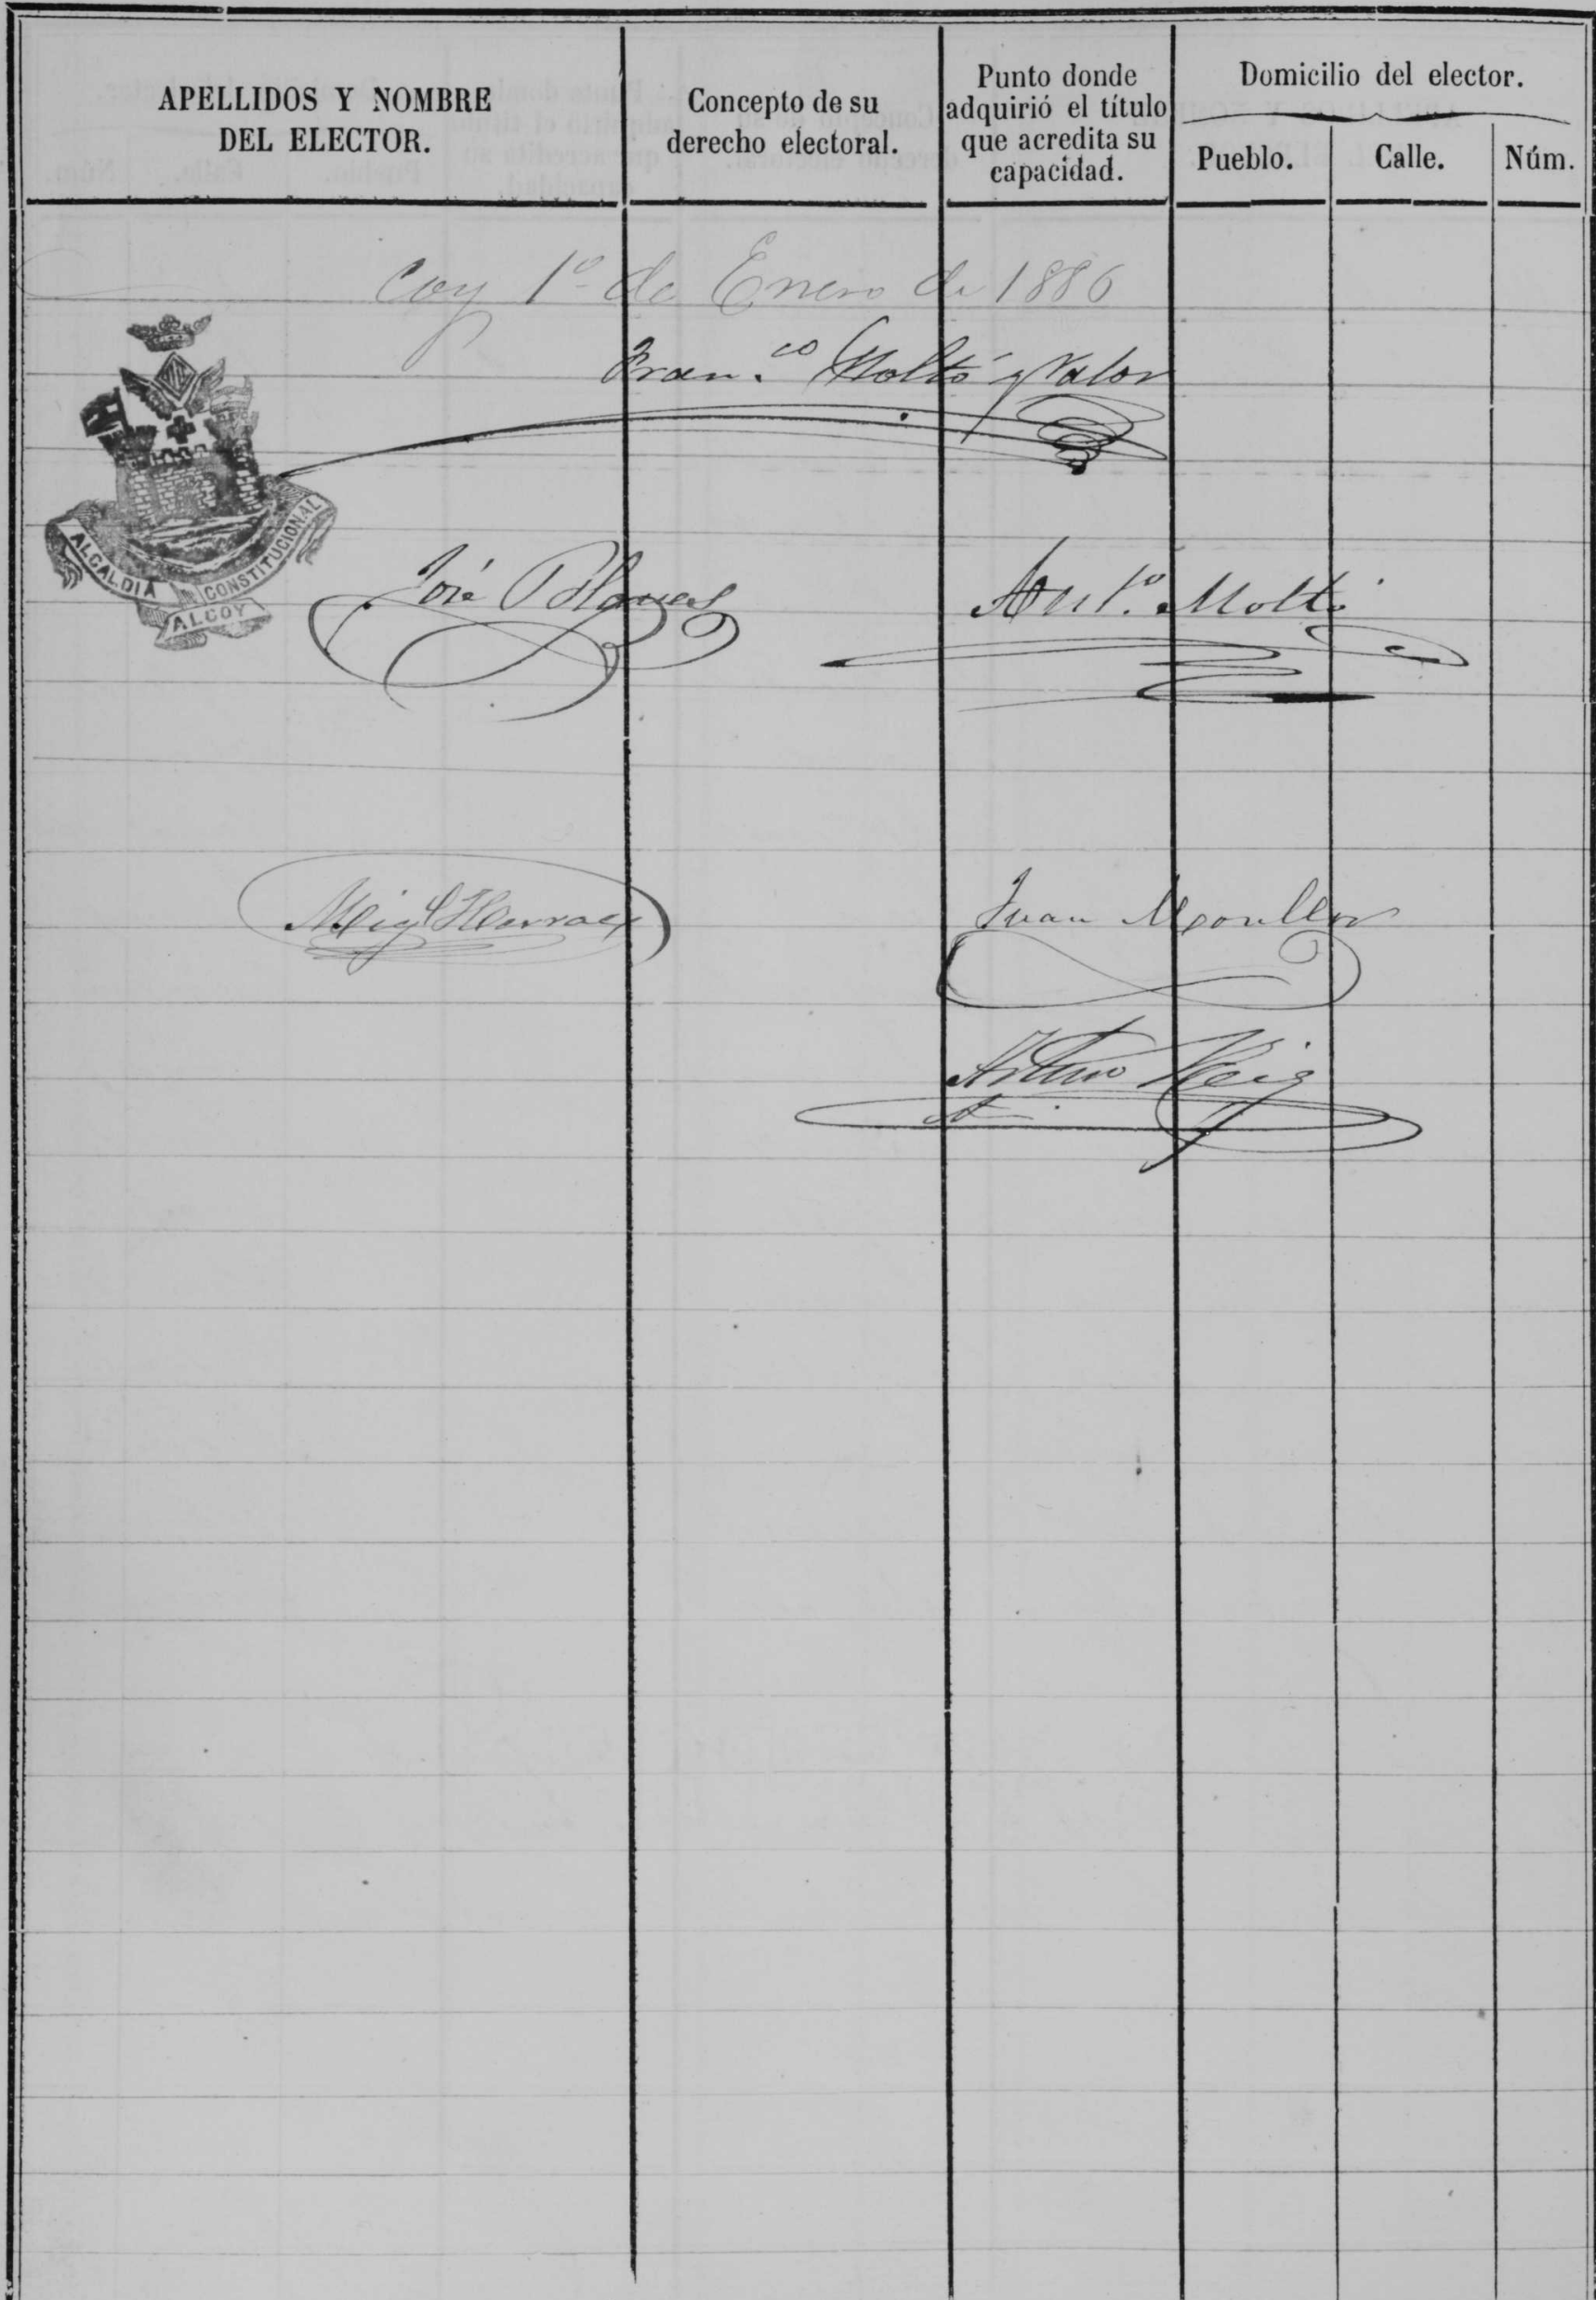 APELLIDOS Y NOMBRE
DEL ELECTOR.
Concepto de su
derecho electoral.
Punto donde
adquirió el título
que acredita su
capacidad.
Domicilio del elector.
Pueblo.
Calle.
Núm.
coy 1º de Enero de 1886
Fran.co Moltó y Valor
ALCALDIA CONSTITUCIONAL
ALCOY
José Blanes
Ant.º Moltó
Migl
Juan Monllor
Arturo Reig